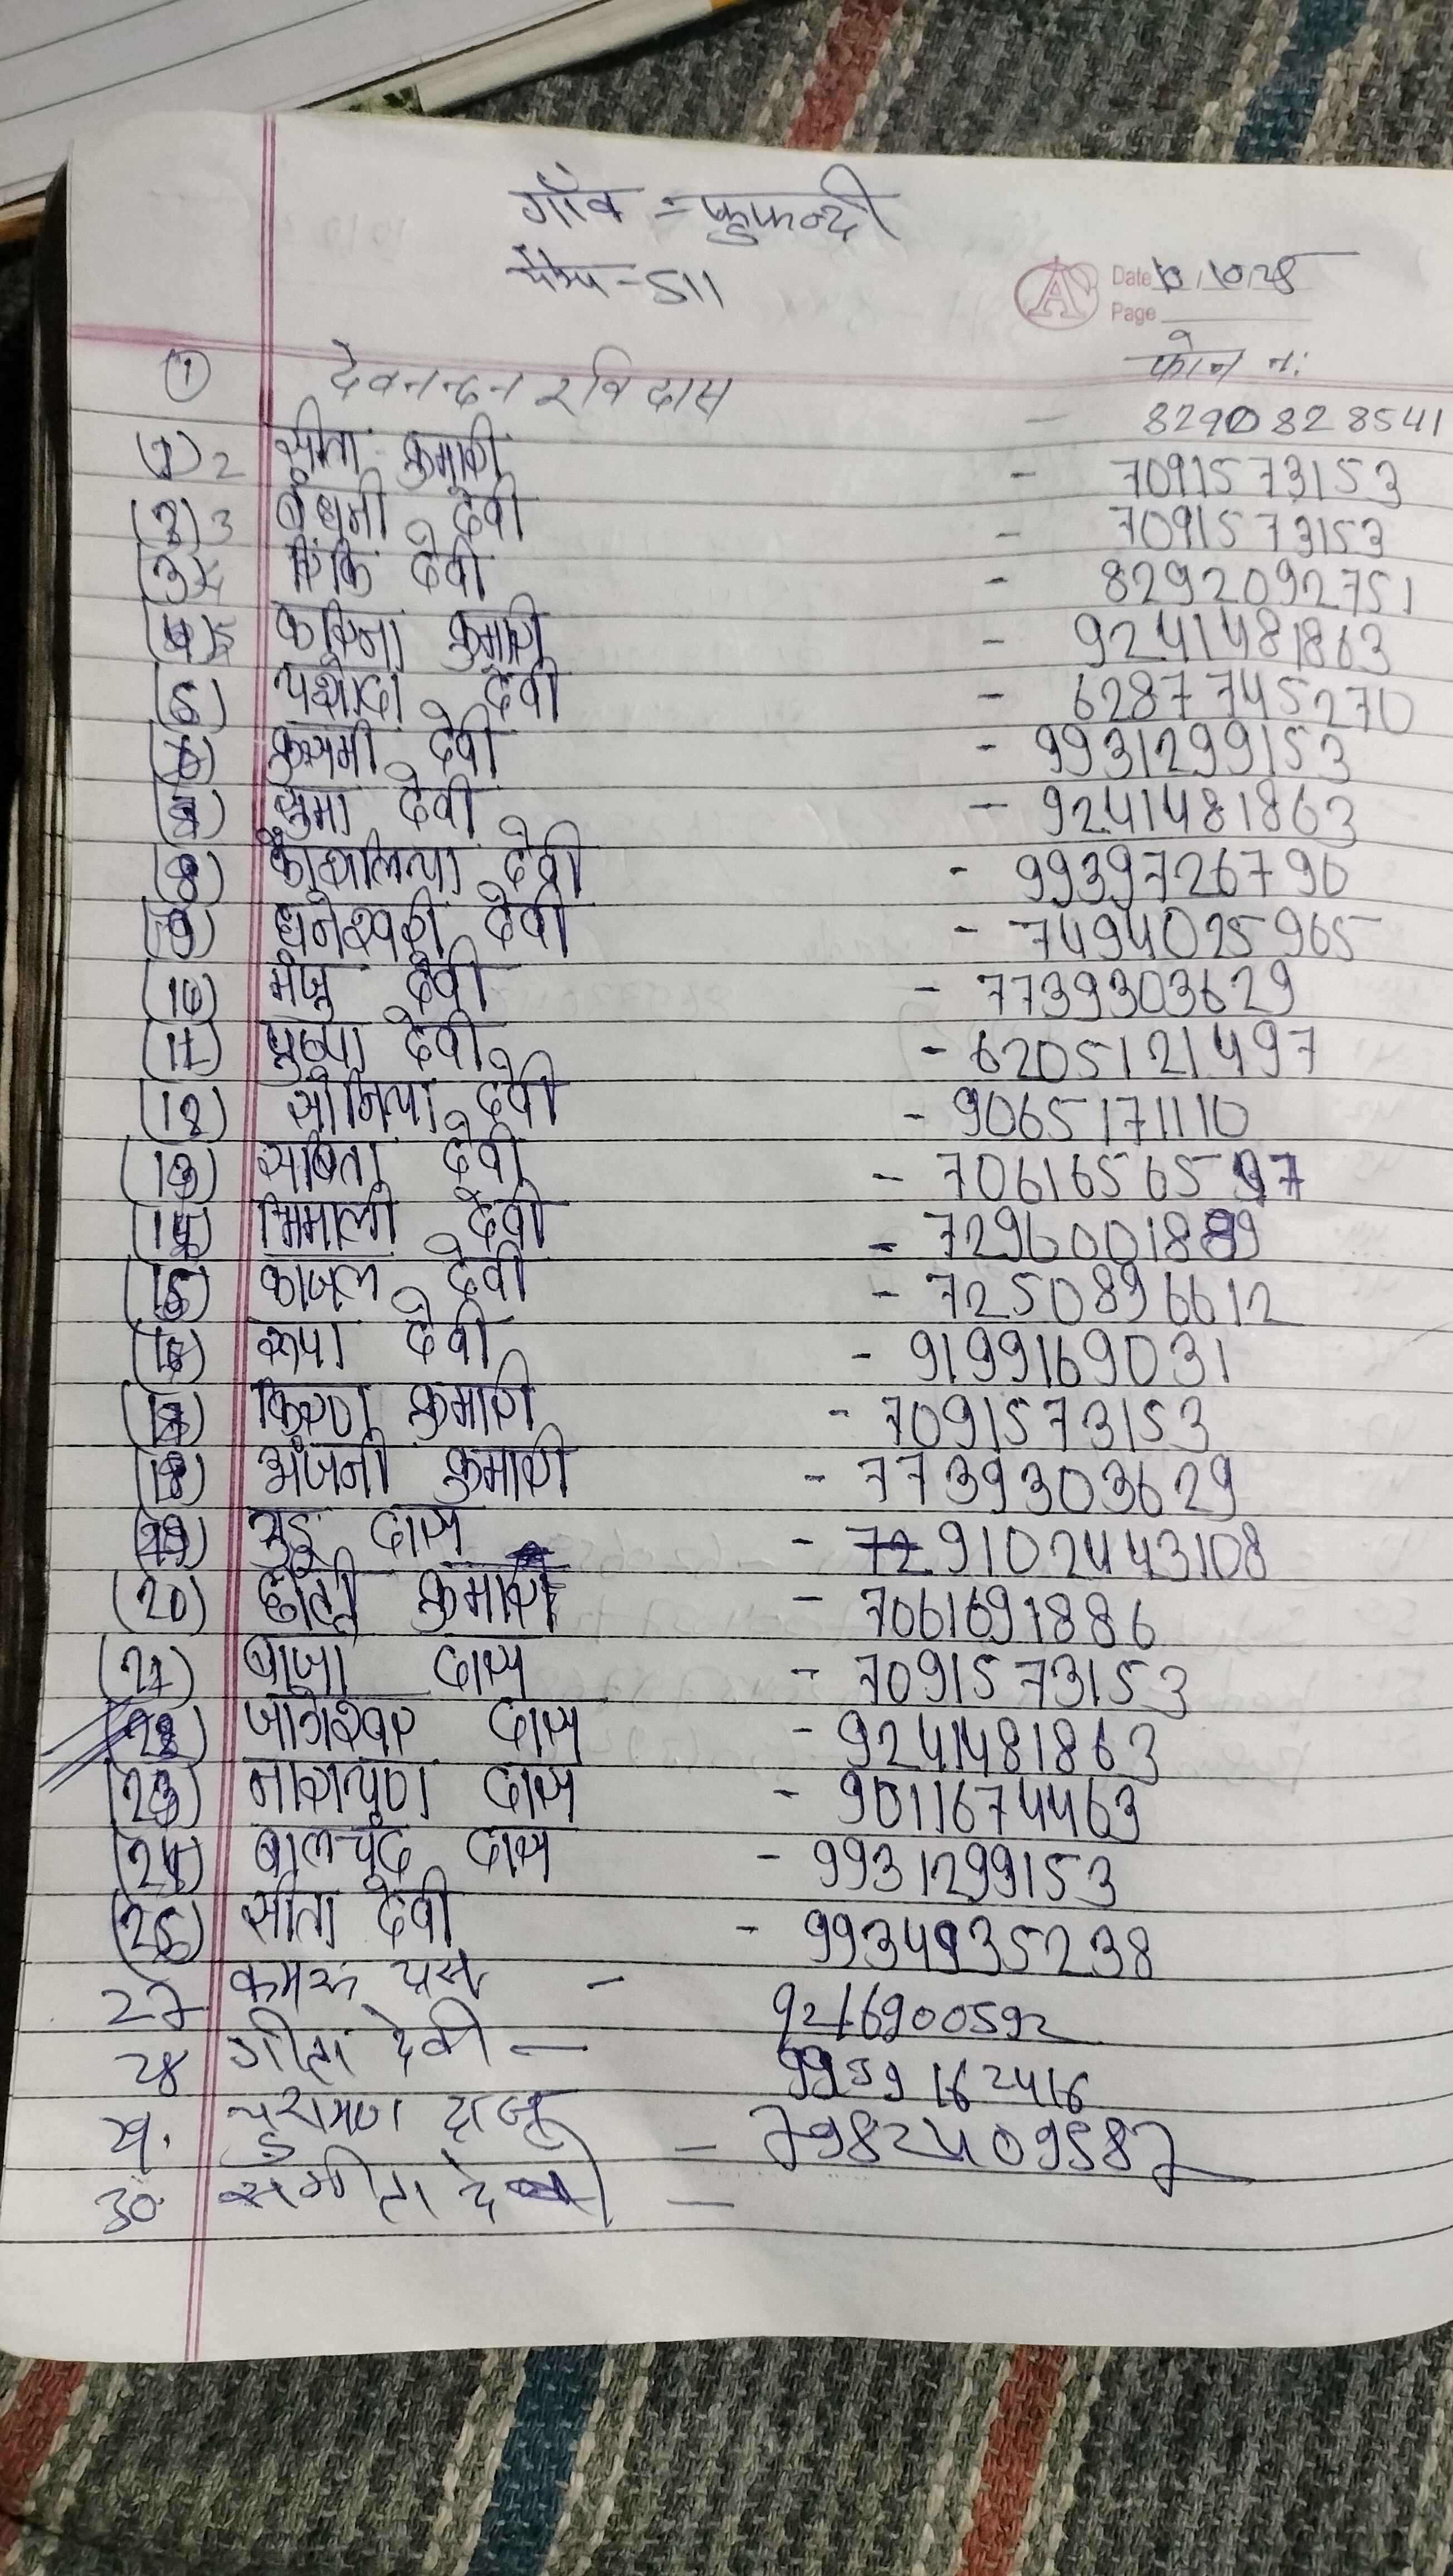 गाँव = फुफन्दी
कैम्प - 511
Date 10/10/25
Page
फोन न:
① देवनन्दन रविदास - 8290828541
(1) 2 सीता कुमारी - 7091573153
(2) 3 बुधनी देवी - 7091573153
(3) देवी - 8292092751
(4) 5 करिना कुमारी - 9241481863
(5) यशोदा देवी - 6287745270
(6) कुसमी देवी - 9931299153
सुमा देवी - 9241481863
(8) कौशालिया देवी - 9939726790
(9) धनेश्वरी देवी - 7494025965
(10) मंजु देवी - 7739303629
(11) पुष्पा देवी - 6205121497
(12) सोनिया देवी - 9065171110
(13) सबिता देवी - 7061656597
(14) झिमाली देवी - 7296001889
(15) काजल देवी - 7250896612
(16) रूपा देवी - 9199169031
किरण कुमारी - 7091573153
(18) अंजनी कुमारी - 7739303629
(19) दास - 72 9102443108
(20) छोटी कुमारी - 7061691886
(21) बाजो दास - 7091573153
(22) जागेश्वर दास - 9241481863
(23) नारायण दास - 9011674463
(24) बालचंद दास - 9931299153
(25) सीता देवी - 9934935238
27 कमरू - 9216900592
28 गीता देवी - 9939162416
29. चुरामण - 7982409587
30. संगीता देवी -